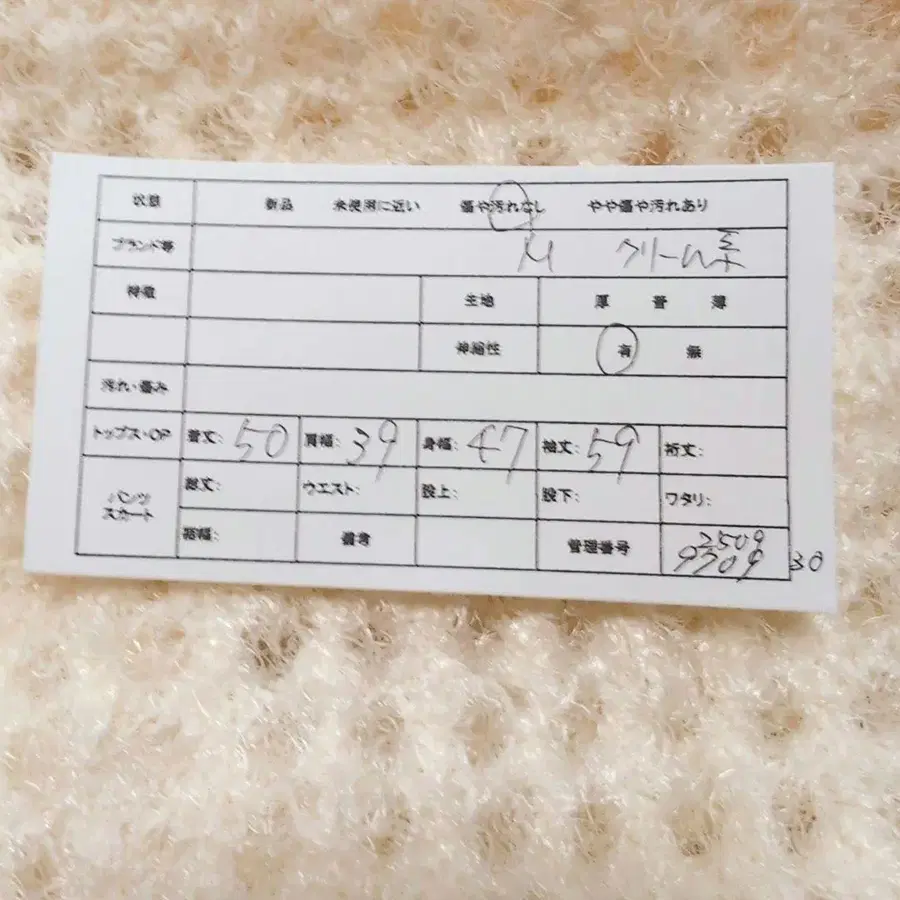 状態 新品 未使用に近い 傷や汚れなし やや傷や汚れあり
ブランド等 M クリーム系
特徴 生地 厚 普 薄
伸縮性 有 無
汚れ・傷み
トップス・OP 着丈: 50 肩幅: 39 身幅: 47 袖丈: 59 裄丈:
パンツ スカート 総丈: ウエスト: 股上: 股下: ワタリ:
裾幅: 備考 管理番号 2509
9709 30